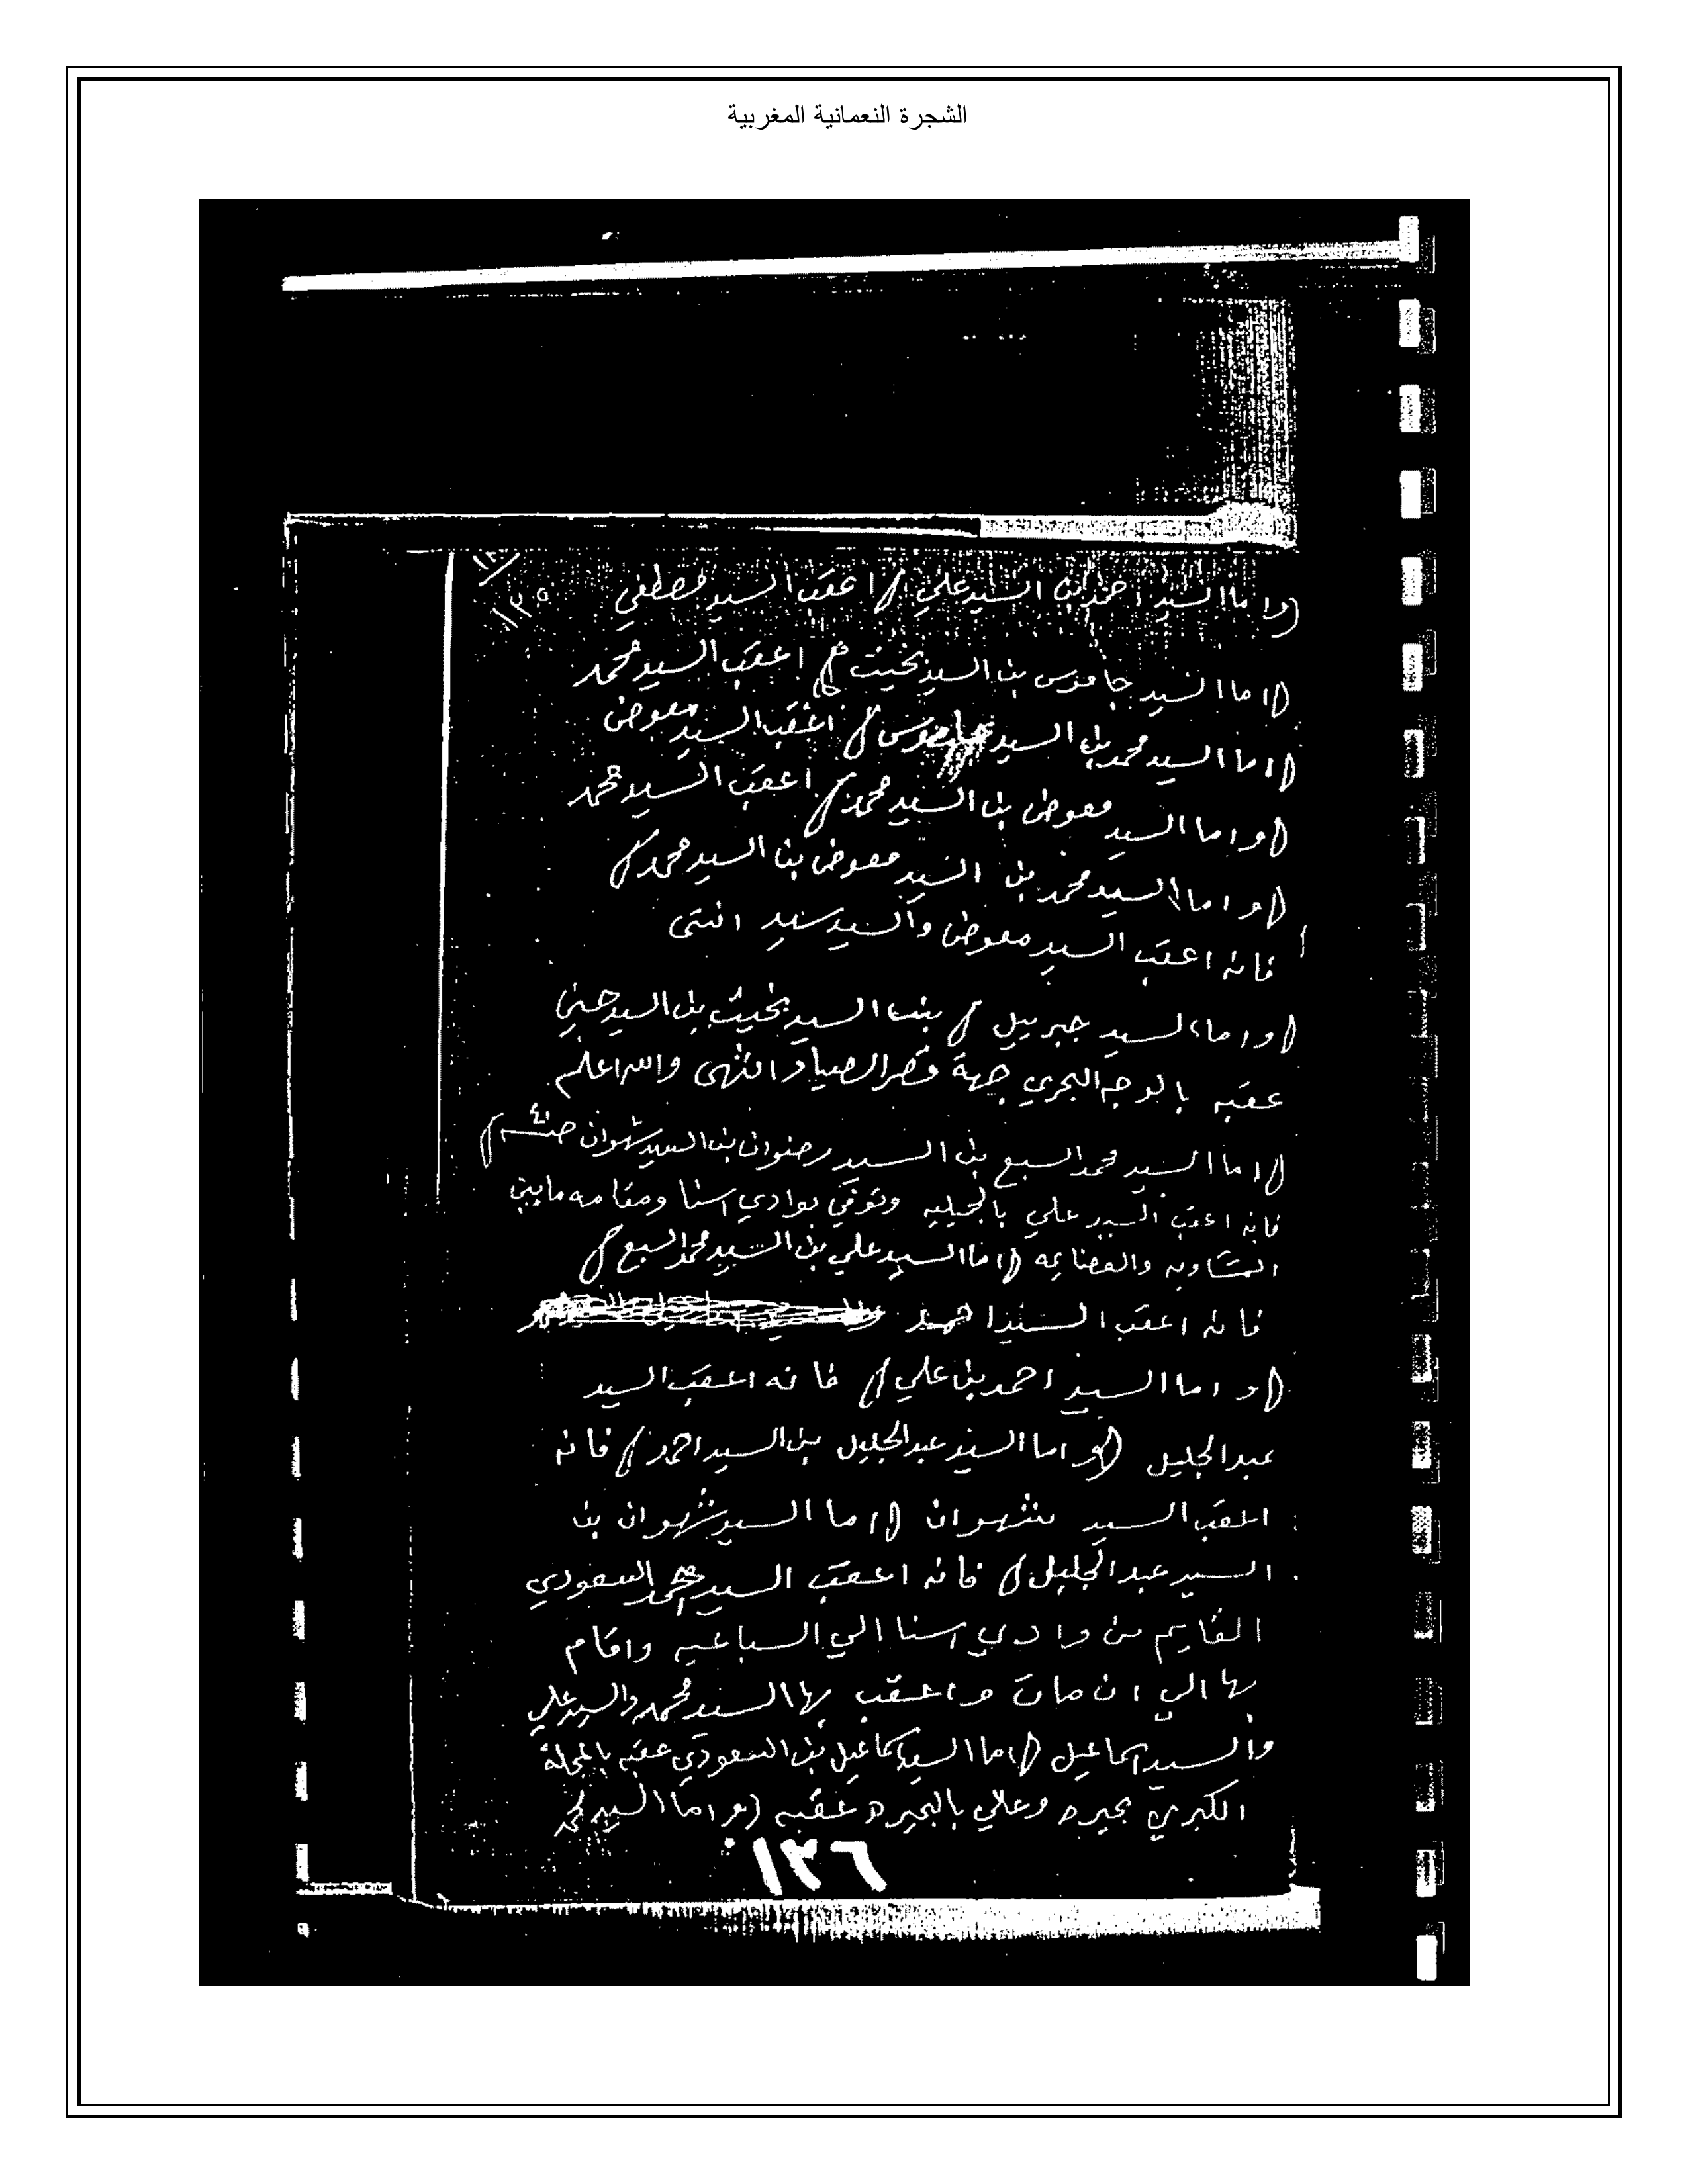 الشجرة النعمانية المغربية
١٢٥
(واما السيد احمد بن السيد علي) اعقب السيد مصطفي
(اما السيد جاموس بن السيد بخيت) اعقب السيد محمد
(اما السيد محمد بن السيد جاموس) اعقب السيد معوض
(واما السيد معوض بن السيد محمد) اعقب السيد محمد
(واما السيد محمد بن السيد معوض بن السيد محمد)
فانه اعقب السيد معوض والسيد سيد انتهى
(واما السيد جبريل) بن السيد بخيت بن السيد حني
عقبه بالوجه البحري جهة قصر الصياد انتهى والله اعلم
(اما السيد محمد السبع بن السيد رضوان بن السيد شهوان
فانه اعقب السيد علي بالجبليه وتوفي بوادي اسنا ومقامه مابين
الشاويه والعضايمه (اما السيد علي بن السيد محمد السبع)
فانه اعقب السيد احمد
(واما السيد احمد بن علي) فانه اعقب السيد
عبد الجليل (واما السيد عبد الجليل بن السيد احمد) فانه
اعقب السيد شهوان (اما السيد شهوان بن
السيد عبد الجليل) فانه اعقب السيد محمد السعودي
القايم من وادي اسنا الي السباعيه واقام
بها الي ان مات واعقب بها السيد محمد والسيد علي
والسيد اسماعيل (اما السيد اسماعيل بن السعودي عقبه بالمحلة
الكبري بحيره وعلي بالبحيره عقبه (واما السيد محمد
١٢٦